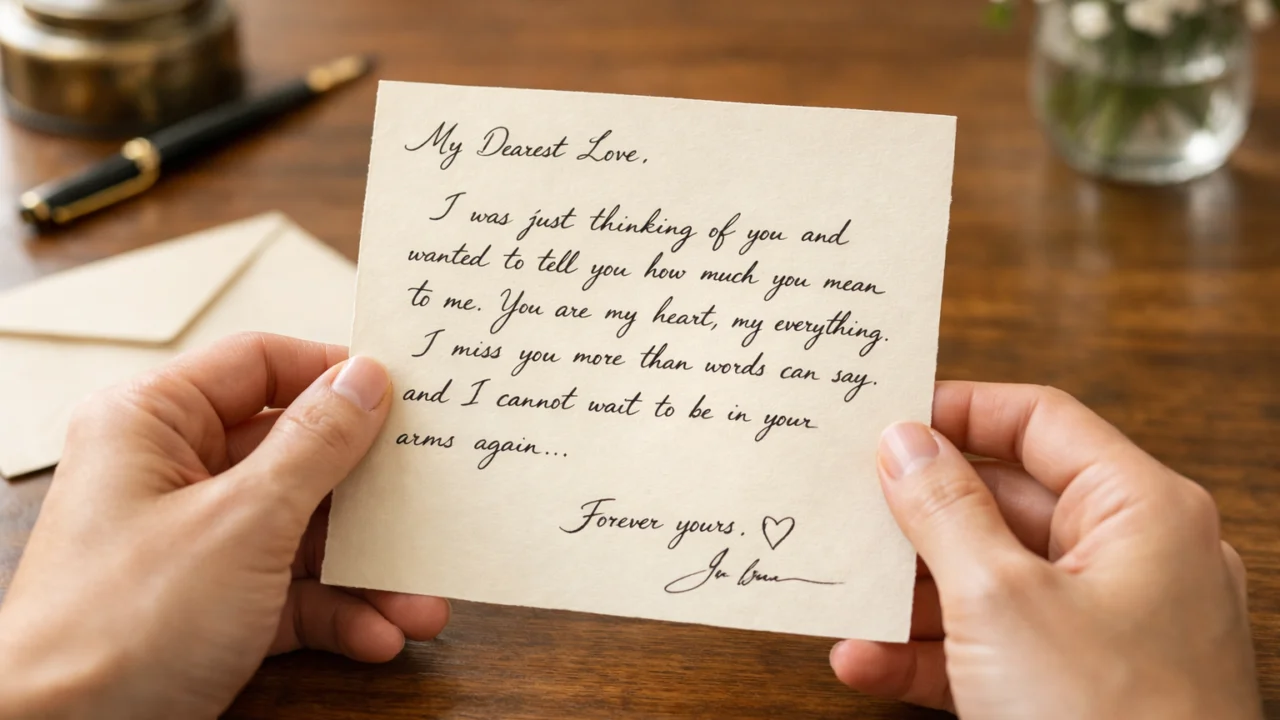 My Dearest Love,
I was just thinking of you and
wanted to tell you how much you mean
to me. You are my heart, my everything.
I miss you more than words can say.
and I cannot wait to be in your
arms again...
Forever yours. ♡